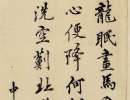 龍眠畫馬
心便降何
洗空劃北
中